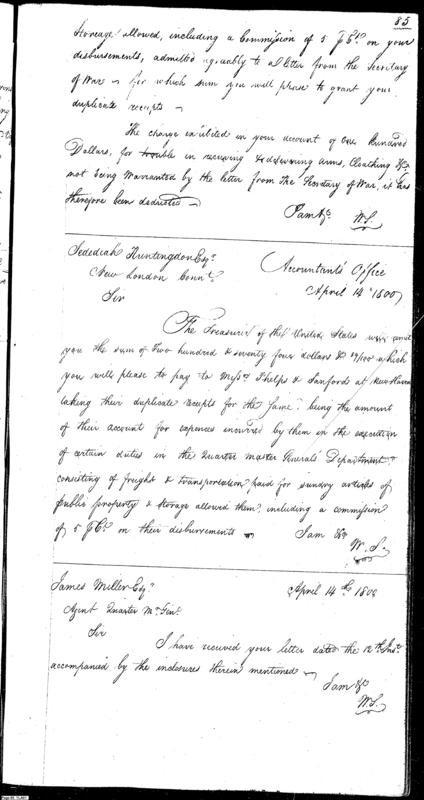 85
Storeage allowed, including a Commission of 5 P Ct. on your
disbursements, admitted agreeably to a letter from the Secretary
of War - for which sum you will please to grant your
duplicate receipts -
The charge exhibited in your account of One Hundred
Dollars, for trouble in receiving & delivering arms, Cloathing &c
not being Warranted by the letter from the Secretary of War, it has
therefore been deducted -
I am &c W.S.
Jedediah Huntingdon Esqr.
New London Connt.
Accountants Office
April 14th 1800
Sir
The Treasurer of the United States will remit
you the sum of Two hundred & seventy four dollars & /100 which
you will please to pay to Messrs Phelps & Sanford at New Haven
taking their duplicate receipts for the same, being the amount
of their account for expences incurred by them in the execution
of certain duties in the Quarter Master Generals Department &
consisting of freight & transportation paid for sundry articles of
public property & storage allowed them, including a commission
of 5 P Ct. on their disbursements - I am &c
W. S.
James Miller Esqr.
April 14th 1800
Agent Quarter Mr. Genl.
Sir
I have received your letter dated the 12th Inst.
accompanied by the inclosures therein mentioned -
I am &c
W.S.